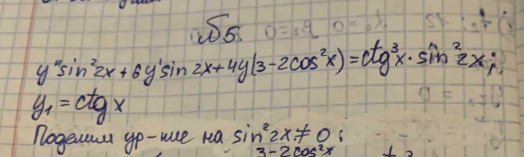 №5.
y''sin²2x+6y'sin2x+4y(3-2cos²x)=ctg³x·sin²2x;
y₁=ctgx
Поделим ур-ние на sin²2x≠0:
3-2cos²x